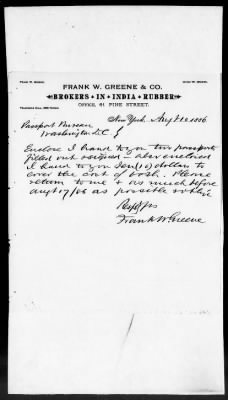 FRANK W. GREENE & CO.
BROKERS · IN · INDIA · RUBBER
OFFICE, 61 PINE STREET.
New York Aug 10 1886
Passport Bureau
Washington D.C.
Enclose I hand to you two passports
filled out & signed - also enclosed
I hand to you Ten (10) dollars to
cover the cost of both. Please
return to me & as much before
Aug 17/86 as possible &
Frank W. Greene